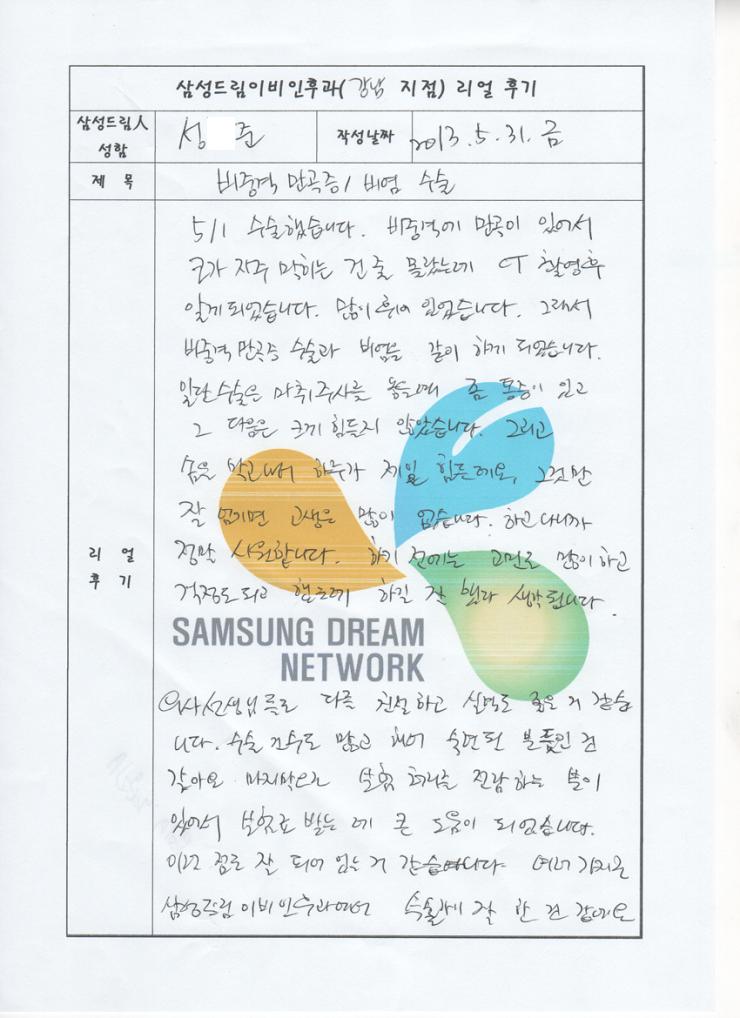 삼성드림이비인후과(강남 지점) 리얼 후기
삼성드림人
성함
성 준
작성날짜
2013. 5. 31. 금
제 목
비중격 만곡증/ 비염 수술
5/1 수술했습니다. 비중격에 만곡이 있어서
코가 자주 막히는 건 줄 몰랐는데 CT 촬영후
알게되었습니다. 많이 휘어 있었습니다. 그래서
비중격 만곡증 수술과 비염을 같이 하게 되었습니다.
일단 수술은 마취주사를 놓는데 좀 통증이 있고
그 다음은 크게 힘들지 않았습니다. 그리고
솜을 막고나서 하루가 제일 힘든데요, 그것만
잘 넘기면 고생은 많이 없습니다. 하고나니까
정말 시원합니다. 하기 전에는 고민도 많이 하고
걱정도 되고 했는데 하길 잘 했다 생각됩니다.
리 얼
후 기
SAMSUNG DREAM
NETWORK
의사선생님들도 다들 친절하고 실력도 좋은 거 같습
니다. 수술 건수도 많고 해서 숙련된 분들인 것
같아요 마지막으로 보험 처리를 전담하는 분이
있어서 보험료 받는 데 큰 도움이 되었습니다.
이런 점도 잘 되어 있는 거 같습니다. 여러 가지로
삼성드림이비인후과에서 수술하게 잘 한 것 같아요